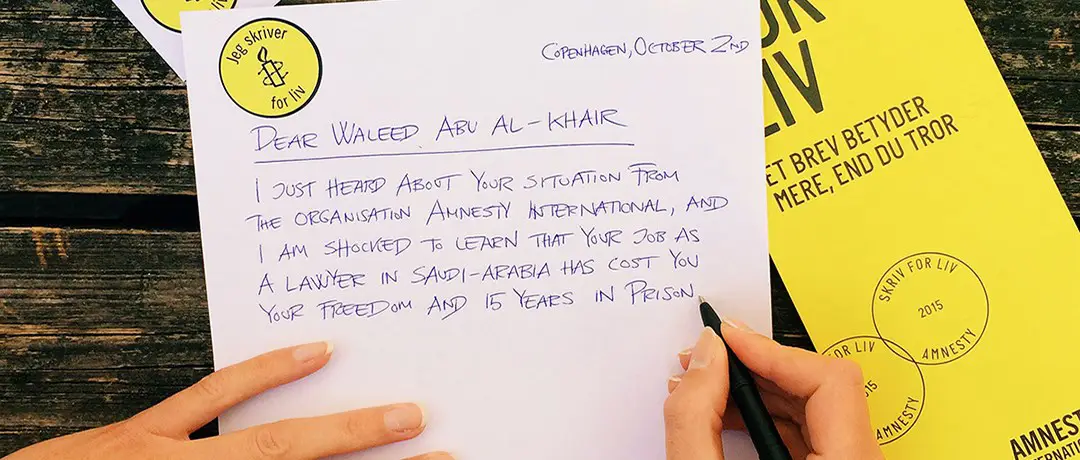 Jeg skriver
for liv
COPENHAGEN, OCTOBER 2ND
DEAR WALEED ABU AL-KHAIR
I JUST HEARD ABOUT YOUR SITUATION FROM
THE ORGANISATION AMNESTY INTERNATIONAL, AND
I AM SHOCKED TO LEARN THAT YOUR JOB AS
A LAWYER IN SAUDI-ARABIA HAS COST YOU
YOUR FREEDOM AND 15 YEARS IN PRISON
LIV
ET BREV BETYDER
MERE, END DU TROR
SKRIV FOR LIV
2015
AMNESTY
FOR LIV
AMNESTY
AMNEST